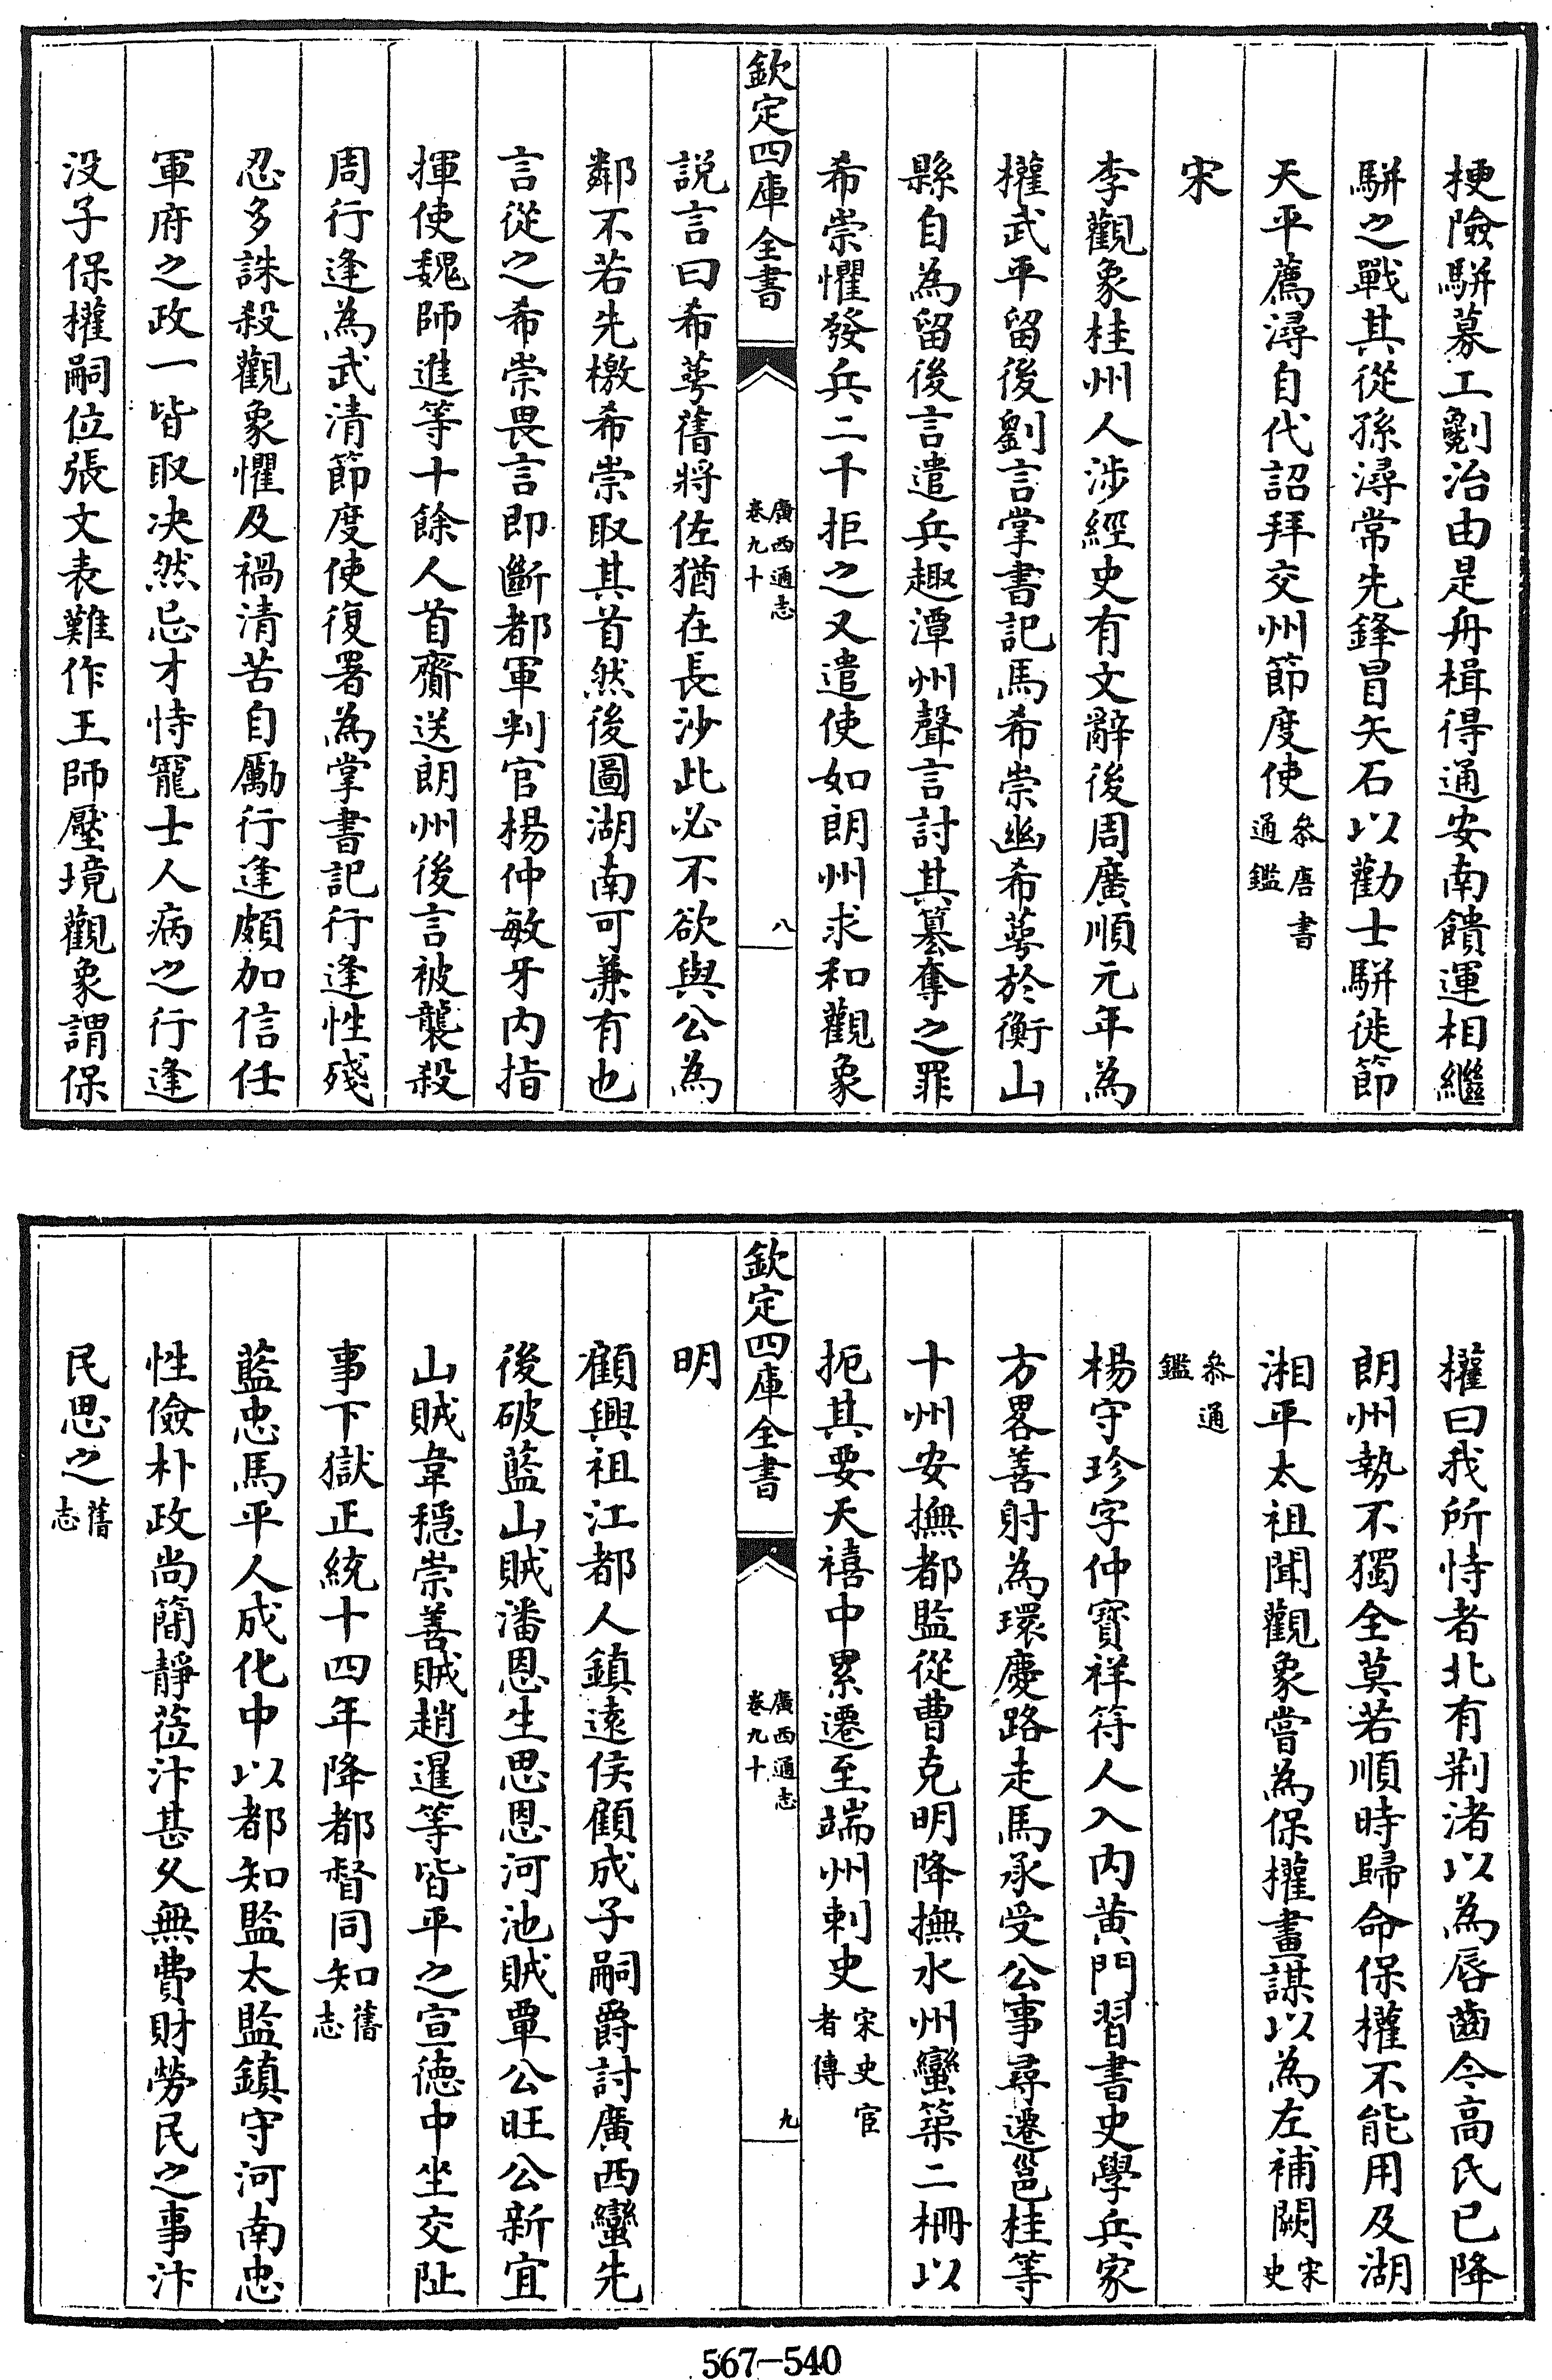 梗險駢募工劖治由是舟楫得通安南饋運相繼
駢之戰其從孫潯常先鋒冒矢石以勸士駢徙節
天平薦潯自代詔拜交州節度使叅唐書通鑑
宋
李觀象桂州人涉經史有文辭後周廣順元年為
權武平留後劉言掌書記馬希崇幽希萼於衡山
縣自為留後言遣兵趣潭州聲言討其簒奪之罪
希崇懼發兵二千拒之又遣使如朗州求和觀象
欽定四庫全書
廣西通志
卷九十
八
説言曰希萼舊將佐猶在長沙此必不欲與公為
鄰不若先檄希崇取其首然後圖湖南可兼有也
言從之希崇畏言即斷都軍判官楊仲敏牙内指
揮使魏師進等十餘人首齎送朗州後言被襲殺
周行逢為武清節度使復署為掌書記行逢性殘
忍多誅殺觀象懼及禍清苦自勵行逢頗加信任
軍府之政一皆取决然忌才恃寵士人病之行逢
没子保權嗣位張文表難作王師壓境觀象謂保
權曰我所恃者北有荆渚以為唇齒今高氏已降
朗州勢不獨全莫若順時歸命保權不能用及湖
湘平太祖聞觀象嘗為保權畫謀以為左補闕宋史
叅通鑑
楊守珍字仲寳祥符人入内黄門習書史學兵家
方畧善射為環慶路走馬承受公事尋遷邕桂等
十州安撫都監從曹克明降撫水州蠻築二柵以
扼其要天禧中累遷至端州刺史宋史宦者傳
欽定四庫全書
廣西通志
卷九十
九
明
顧興祖江都人鎮遠侯顧成子嗣爵討廣西蠻先
後破藍山賊潘恩生思恩河池賊覃公旺公新宜
山賊韋穏崇善賊趙暹等皆平之宣德中坐交阯
事下獄正統十四年降都督同知舊志
藍忠馬平人成化中以都知監太監鎮守河南忠
性儉朴政尚簡靜莅汴甚久無費財勞民之事汴
民思之舊志
567-540